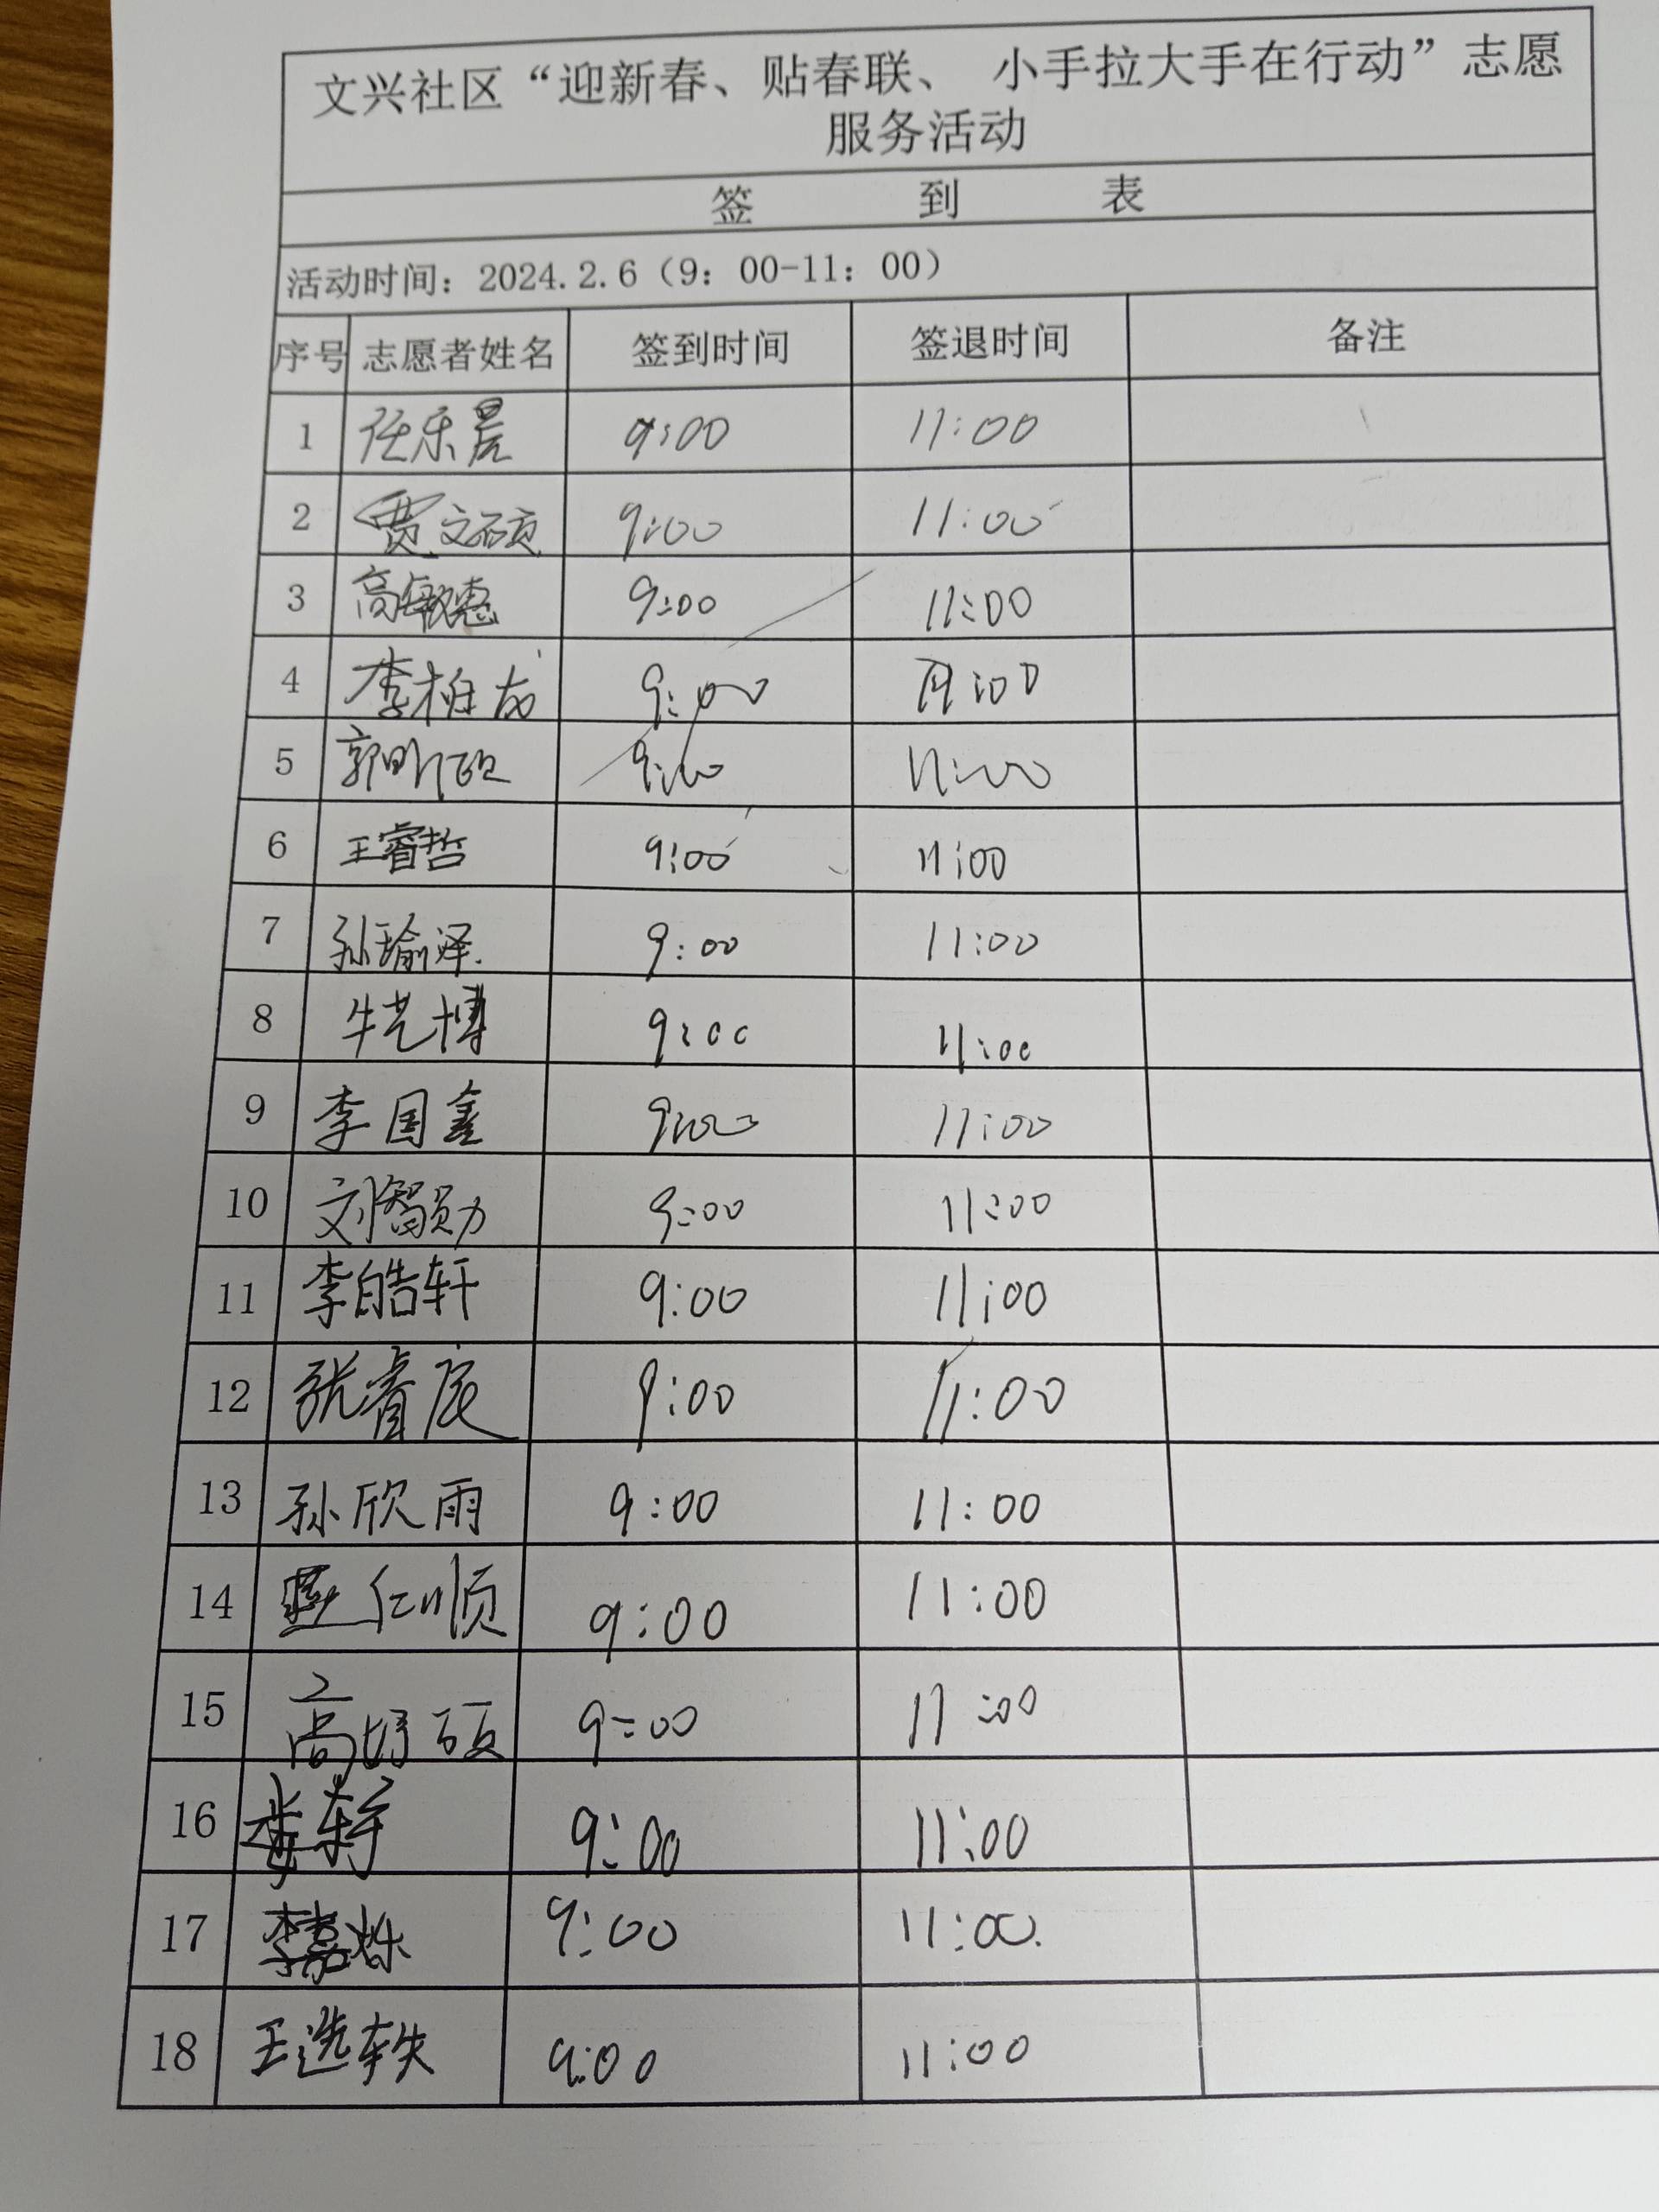 文兴社区“迎新春、贴春联、 小手拉大手在行动”志愿
服务活动
签 到 表
活动时间：2024.2.6（9：00-11：00）
序号 志愿者姓名 签到时间 签退时间 备注
1 任乐晨 9:00 11:00
2 贾文硕 9:00 11:00
3 高敏惠 9:00 11:00
4 李 9:00 11:00
5 郭明硕 9:00 11:00
6 王睿哲 9:00 11:00
7 孙瑜泽. 9:00 11:00
8 牛艺博 9:00 11:00
9 李国鑫 9:00 11:00
10 刘智勋 9:00 11:00
11 李皓轩 9:00 11:00
12 张睿辰 9:00 11:00
13 孙欣雨 9:00 11:00
14 仁顺 9:00 11:00
15 高 硕 9:00 11:00
16 李 9:00 11:00
17 李嘉烁 9:00 11:00.
18 王选轶 9:00 11:00